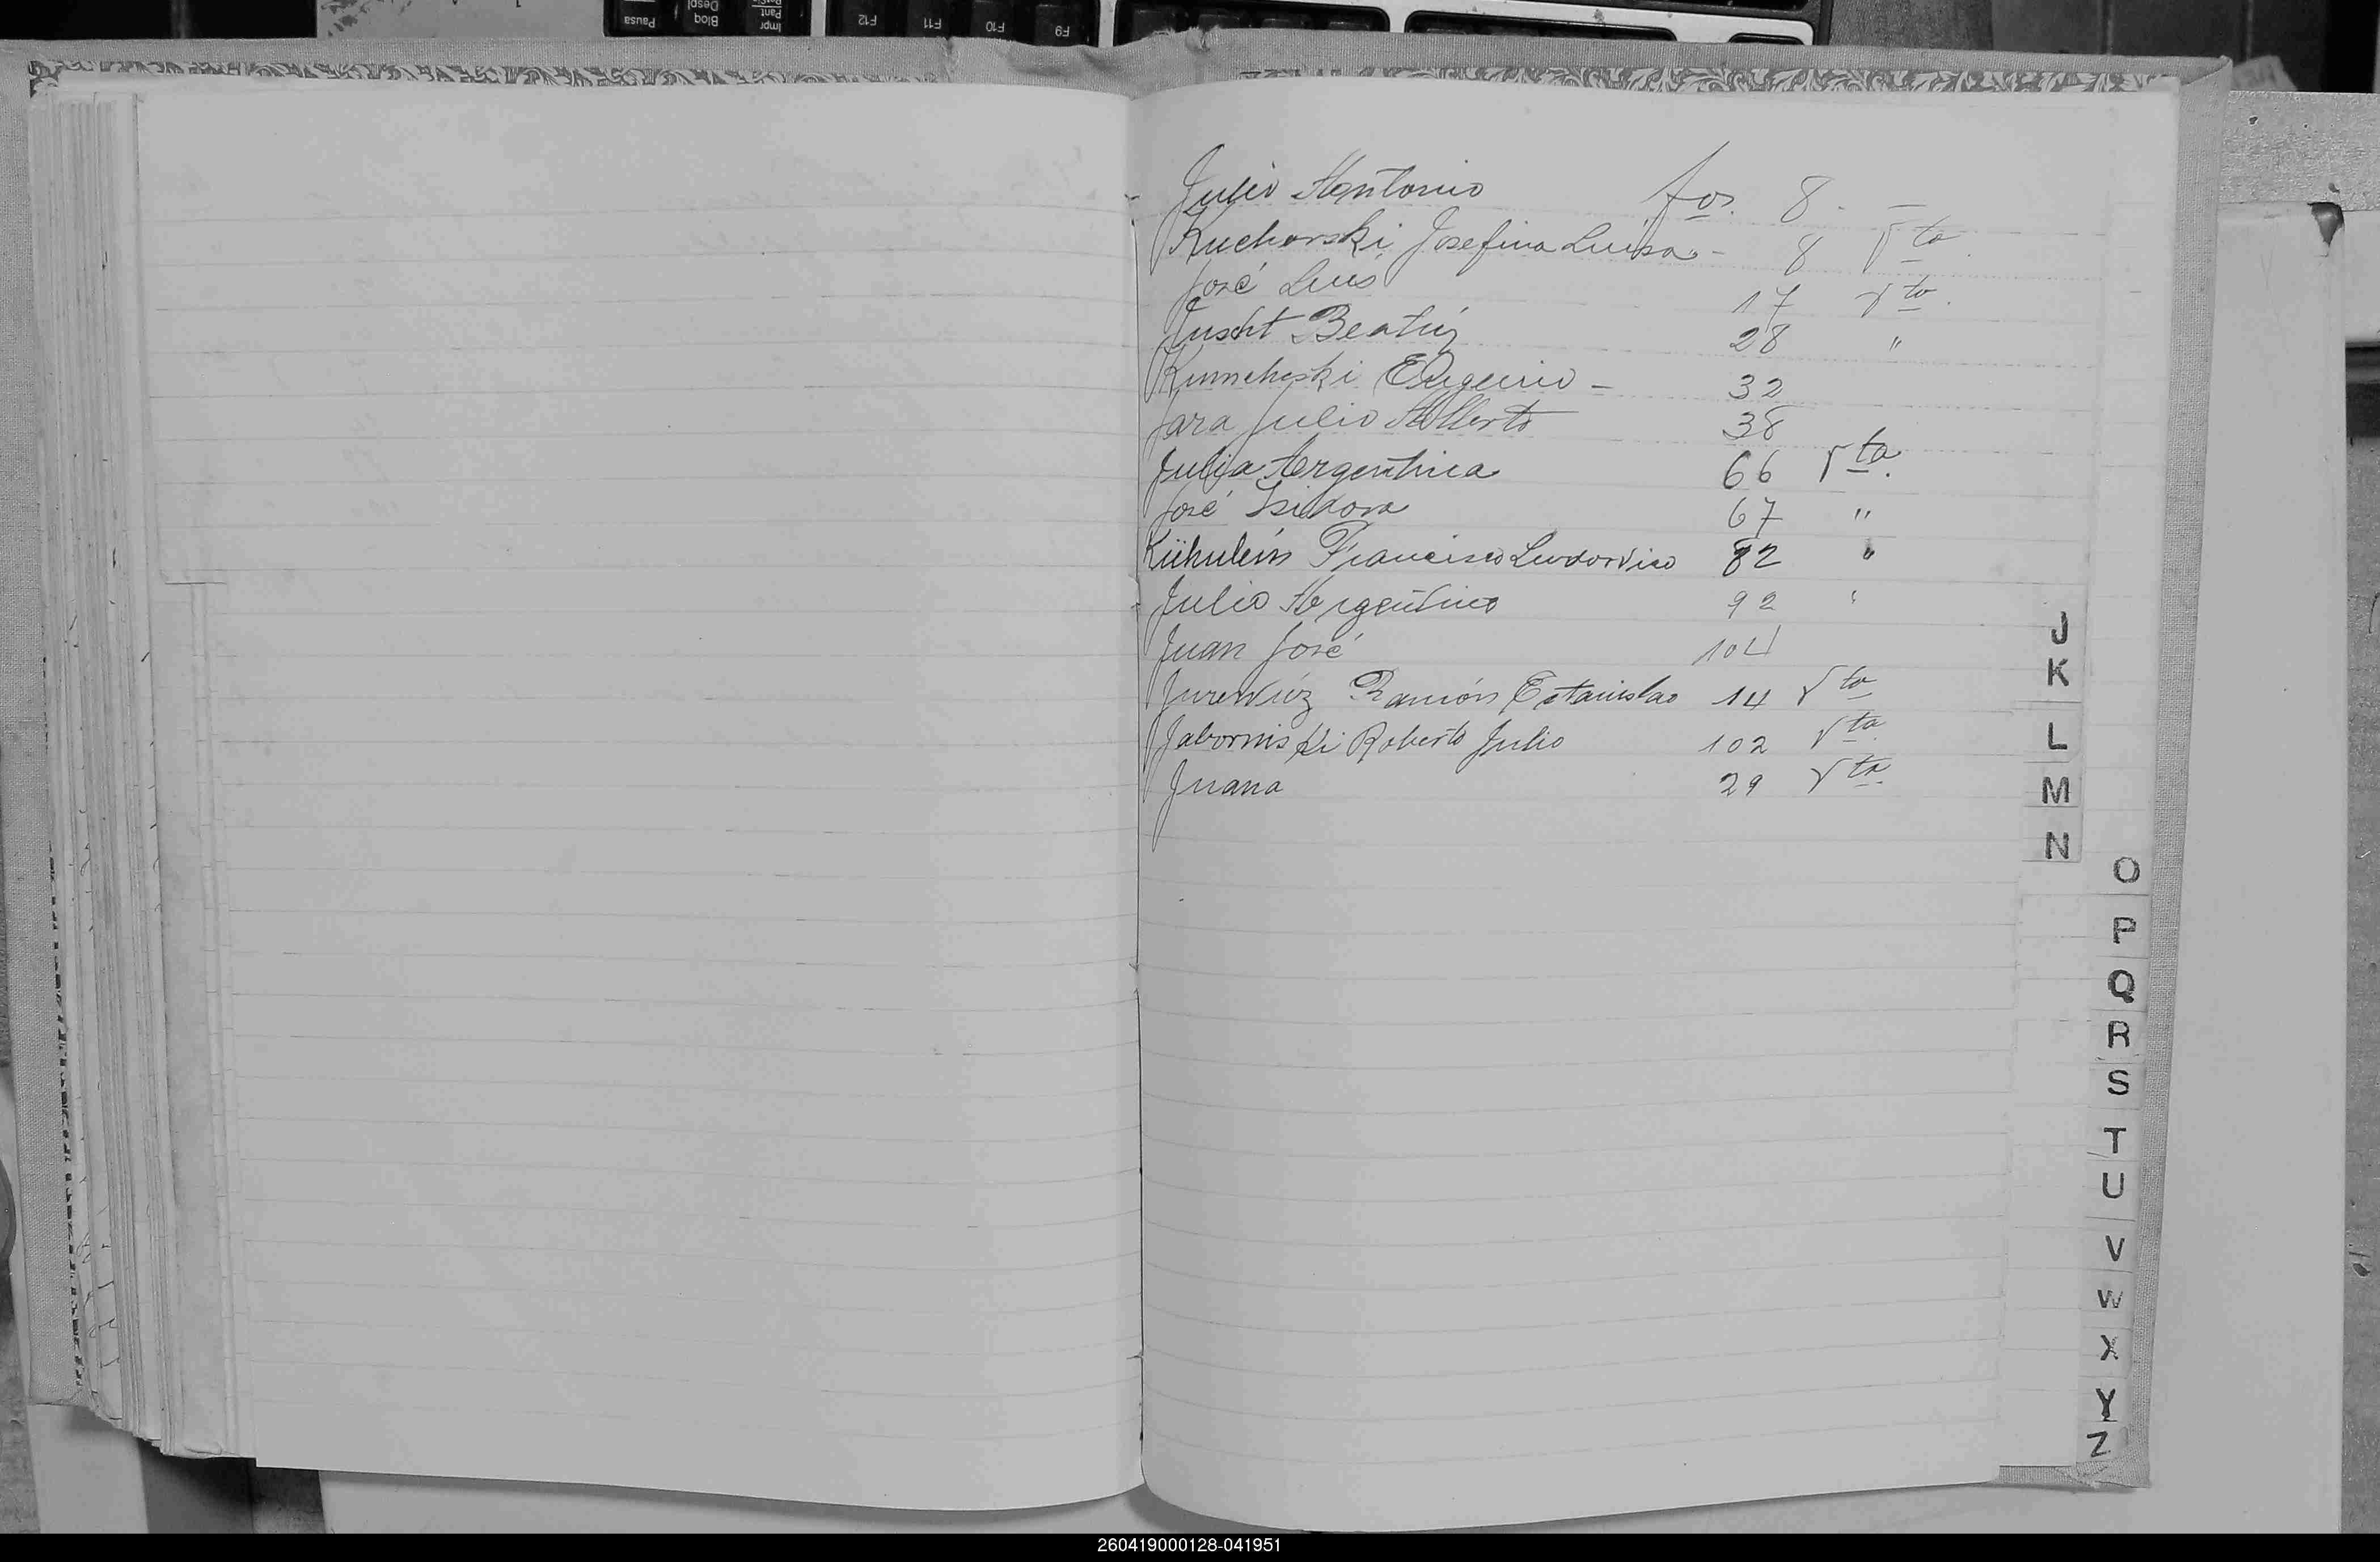 Julio Antonio fos. 8. -
Kucharski Josefina Luisa - 8 Vta.
José Luis 17 Vto.
Juscht Beatriz 28 "
Kumcheski Eugenio - 32
Jara Julio Alberto 38
Julia Argentina 66 Vta.
José Isidora 67 "
Kühnlein Francisco Ludovico 82 "
Julio Argentino 92 "
Juan José 104
Jurewicz Ramón Estanislao 14 Vto
Jaborniski Roberto Julio 102 Vta.
Juana 29 Vta.
J
K
L
M
N
O
P
Q
R
S
T
U
V
W
X
Y
Z
Pausa
Bloq Despl
Impr Pant
F12
F11
F10
F9
260419000128-041951